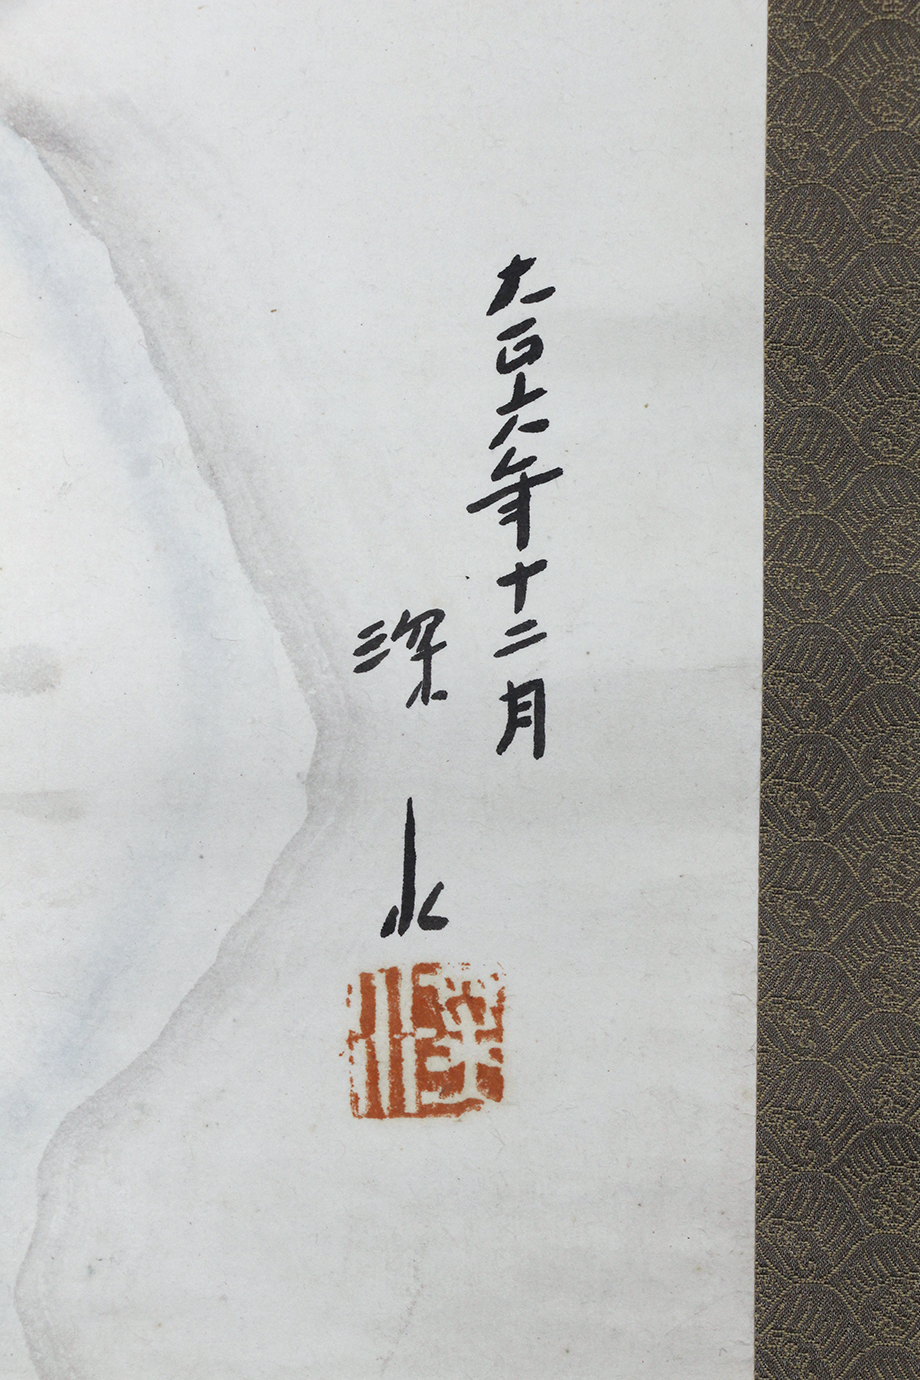 大正六年十二月
深水